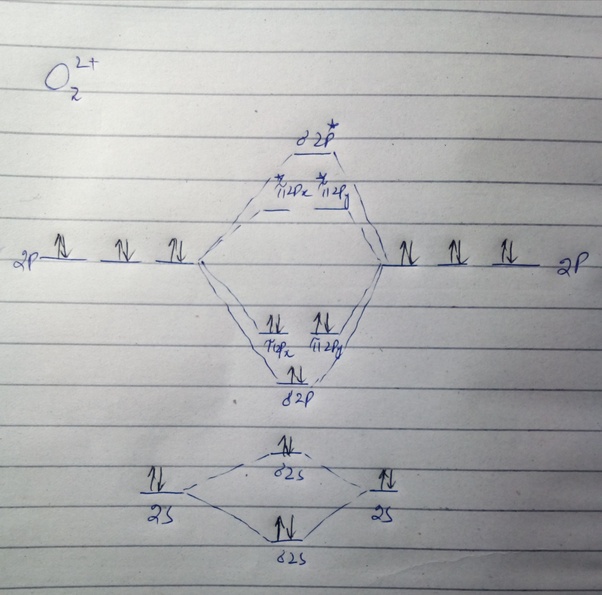 O₂²⁺
σ2p*
π*2px π*2py
2p ↑↓ ↑↓ ↑↓ ↑↓ ↑↓ ↑↓ 2p
↑↓ ↑↓
π2px π2py
↑↓
σ2p
↑↓
σ2s
↑↓ ↑↓
2s 2s
↑↓
σ2s